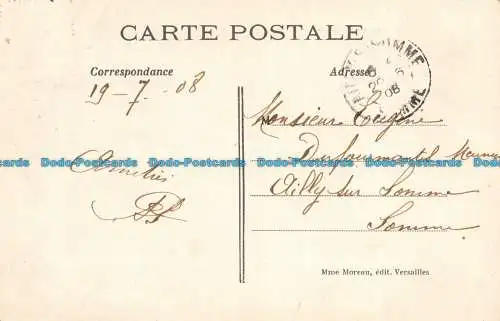 CARTE POSTALE
Correspondance
Adresse
19-7-08
Monsieur Eugène
Dufourmantel Meunier
Ailly sur Somme
Somme
Amitiés
Mme Moreau, édit. Versailles
SOMME
08
Dodo-Postcards Dodo-Postcards Dodo-Postcards Dodo-Postcards Dodo-Postcards